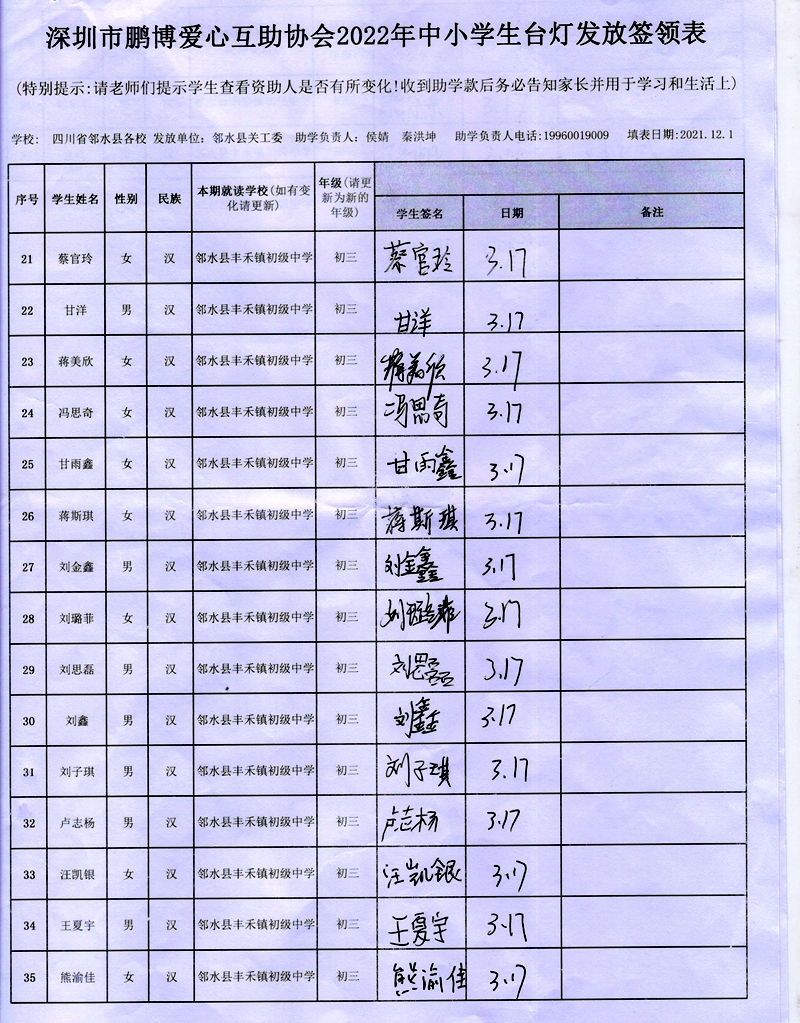 深圳市鹏博爱心互助协会2022年中小学生台灯发放签领表
(特别提示:请老师们提示学生查看资助人是否有所变化!收到助学款后务必告知家长并用于学习和生活上)
学校: 四川省邻水县各校 发放单位:邻水县关工委 助学负责人:侯婧 秦洪坤 助学负责人电话:19960019009 填表日期:2021.12.1
序号 学生姓名 性别 民族 本期就读学校(如有变化请更新) 年级(请更新为新的年级) 学生签名 日期 备注
21 蔡官玲 女 汉 邻水县丰禾镇初级中学 初三 蔡官玲 3.17
22 甘洋 男 汉 邻水县丰禾镇初级中学 初三 甘洋 3.17
23 蒋美欣 女 汉 邻水县丰禾镇初级中学 初三 蒋美欣 3.17
24 冯思奇 女 汉 邻水县丰禾镇初级中学 初三 冯思奇 3.17
25 甘雨鑫 女 汉 邻水县丰禾镇初级中学 初三 甘雨鑫 3.17
26 蒋斯琪 女 汉 邻水县丰禾镇初级中学 初三 蒋斯琪 3.17
27 刘金鑫 男 汉 邻水县丰禾镇初级中学 初三 刘金鑫 3.17
28 刘璐菲 女 汉 邻水县丰禾镇初级中学 初三 刘璐菲 3.17
29 刘思磊 男 汉 邻水县丰禾镇初级中学 初三 刘思磊 3.17
30 刘鑫 男 汉 邻水县丰禾镇初级中学 初三 刘鑫 3.17
31 刘子琪 男 汉 邻水县丰禾镇初级中学 初三 刘子琪 3.17
32 卢志杨 男 汉 邻水县丰禾镇初级中学 初三 卢志杨 3.17
33 汪凯银 女 汉 邻水县丰禾镇初级中学 初三 汪凯银 3.17
34 王夏宇 男 汉 邻水县丰禾镇初级中学 初三 王夏宇 3.17
35 熊渝佳 女 汉 邻水县丰禾镇初级中学 初三 熊渝佳 3.17